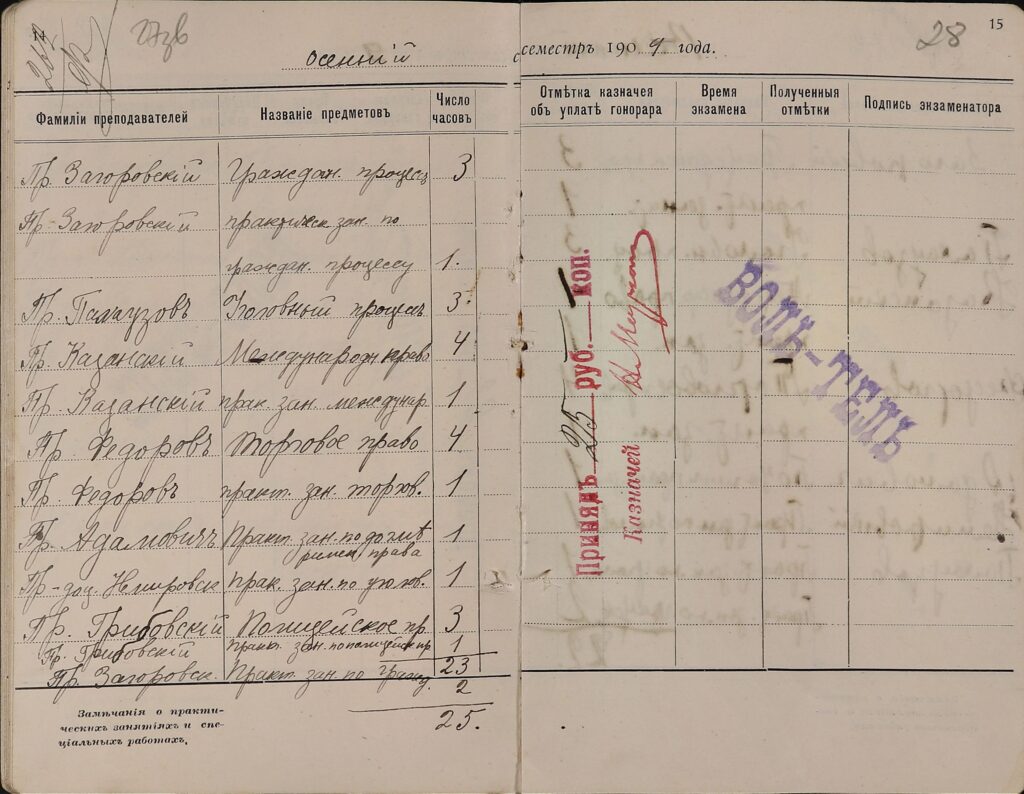 14
273в
осенній
семестръ 1909 года.
28
15
Фамиліи преподавателей
Названіе предметовъ
Число часовъ
Отмѣтка казначея объ уплатѣ гонорара
Время экзамена
Полученныя отмѣтки
Подпись экзаменатора
Пр. Загоровскій Граждан. процессъ 3
Пр. Загоровскій практическ зан. по
граждан. процессу 1.
Пр. Палаузовъ Уголовный процессъ 3.
Пр. Казанскій Международн право 4
Пр. Казанскій прак. зан. междунар 1
Пр. Федоровъ Торговое право 4
Пр. Федоровъ практ. зан. торгов. 1
Пр. Адамовичъ Практ. зан. по догмѣ 1
римск права
Пр-доц. прак. зан. по уголов. 1
Пр. Грибовскій Полицейское пр. 3
Пр. Грибовскій Практ. зан. по полицейск пр 1
23
Пр. Загоровск. Практ. зан. по гражд. 2
25.
Замѣчанія о практи-
ческихъ занятіяхъ и спе-
ціальныхъ работахъ.
Принялъ 25 руб. — коп.
Казначей
ВОЛЬ-ТЕЛЬ